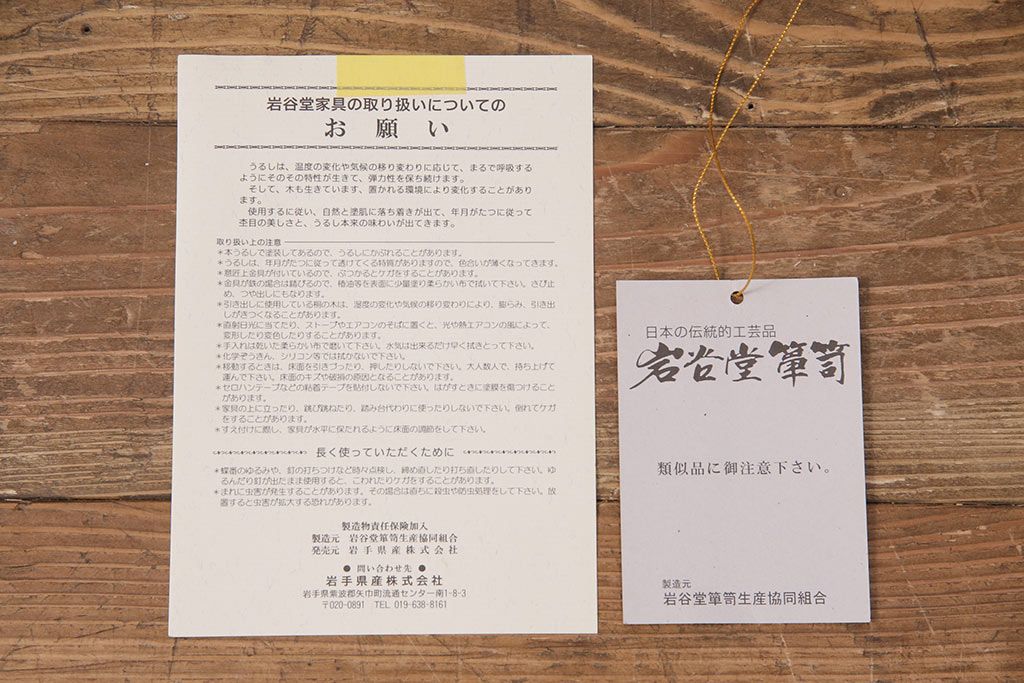 岩谷堂家具の取り扱いについての
お願い
うるしは、温度の変化や気候の移り変わりに応じて、まるで呼吸す
るようにそのその特性が生きて、弾力性を保ち続けます。
そして、木も生きています、置かれる環境により変化することがあり
ます。
使用するに従い、自然と塗肌に落ち着きが出て、年月がたつに従って
杢目の美しさと、うるし本来の味わいが出てきます。
取り扱い上の注意
＊本うるしで塗装してあるので、うるしにかぶれることがあります。
＊うるしは、年月がたつに従って透けてくる特質がありますので、色合いが薄くなってきます。
＊意匠上金具が付いているので、ぶつかるとケガをすることがあります。
＊金具が鉄の場合は錆びるので、椿油等を表面に少量塗り柔らかい布で拭いて下さい。さび止
め、つや出しにもなります。
＊引き出しに使用している桐の木は、湿度の変化や気候の移り変わりにより、膨らみ、引き出
しがきつくなることがあります。
＊直射日光に当てたり、ストーブやエアコンのそばに置くと、光や熱エアコンの風によって、
変形したり変色したりすることがあります。
＊手入れは乾いた柔らかい布で磨いて下さい。水気は出来るだけ早く拭きとって下さい。
＊化学ぞうきん、シリコン等では拭かないで下さい。
＊移動するときは、床面を引きづったり、押したりしないで下さい。大人数人で、持ち上げて
運んで下さい。床面のキズや破損の原因となることがあります。
＊セロハンテープなどの粘着テープを貼付しないで下さい。はがすときに塗膜を傷つけること
があります。
＊家具の上に立ったり、跳び跳ねたり、踏み台代わりに使ったりしないで下さい。倒れてケガ
をすることがあります。
＊すえ付けに際し、家具が水平に保たれるように床面の調節をして下さい。
長く使っていただくために
＊蝶番のゆるみや、釘の打ちつけなど時々点検し、締め直したり打ち直したりして下さい。ゆ
るんだり釘が出たまま使用すると、こわれたりケガをすることがあります。
＊まれに虫害が発生することがあります。その場合は直ちに殺虫や防虫処理をして下さい。放
置すると虫害が拡大する恐れがあります。
製造物責任保険加入
製造元 岩谷堂箪笥生産協同組合
発売元 岩手県産株式会社
● 問い合わせ先 ●
岩手県産株式会社
岩手県紫波郡矢巾町流通センター南1-8-3
〒020-0891 TEL 019-638-8161
日本の伝統的工芸品
岩谷堂箪笥
類似品に御注意下さい。
製造元
岩谷堂箪笥生産協同組合